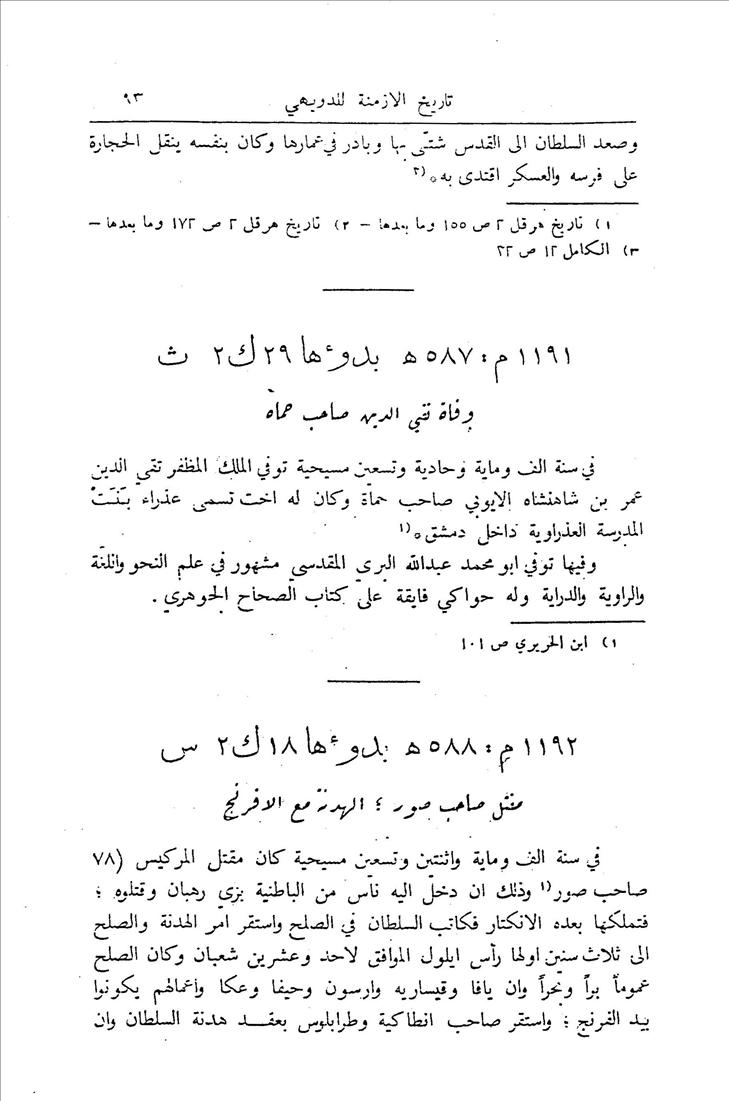 تاريخ الازمنة للدويهي ٩٣
وصعد السلطان الى القدس شتّى بها وبادر في عمارها وكان بنفسه ينقل الحجارة
على فرسه والعسكر اقتدى به٠(٢
١) تاريخ هرقل ٢ ص ١٥٥ وما بعدها – ٢) تاريخ هرقل ٢ ص ١٧٢ وما بعدها –
٣) الكامل ١٢ ص ٢٢
١١٩١ م : ٥٨٧ ھ بدوءها ٢٩ ك ٢ ث
وفاة تقي الدين صاحب حماه
في سنة الف وماية وحادية وتسعين مسيحية توفي الملك المظفر تقي الدين
عمر بن شاهنشاه الايوبي صاحب حماة وكان له اخت تسمى عذراء بنَت
المدرسة العذراوية داخل دمشق٠(١
وفيها توفي ابو محمد عبدالله البري المقدسي مشهور في علم النحو واللغة
والراوية والدراية وله حواكي فايقة على كتاب الصحاح الجوهري .
١) ابن الحريري ص ١٠١
١١٩٢ م : ٥٨٨ ھ بدوءها ١٨ ك ٢ س
مقتل صاحب صور ؛ الهدنة مع الافرنج
في سنة الف وماية واثنتين وتسعين مسيحية كان مقتل المركيس (٧٨
صاحب صور(١ وذلك ان دخل اليه ناس من الباطنية بزي رهبان وقتلوه ؛
فتملكها بعده الانكتار فكاتب السلطان في الصلح واستقر امر الهدنة والصلح
الى ثلاث سنين اولها رأس ايلول الموافق لاحد وعشرين شعبان وكان الصلح
عموماً براً وبحراً وان يافا وقيساريه وارسون وحيفا وعكا واعمالهم يكونوا
بيد الفرنج ؛ واستقر صاحب انطاكية وطرابلوس بعقد هدنة السلطان وان